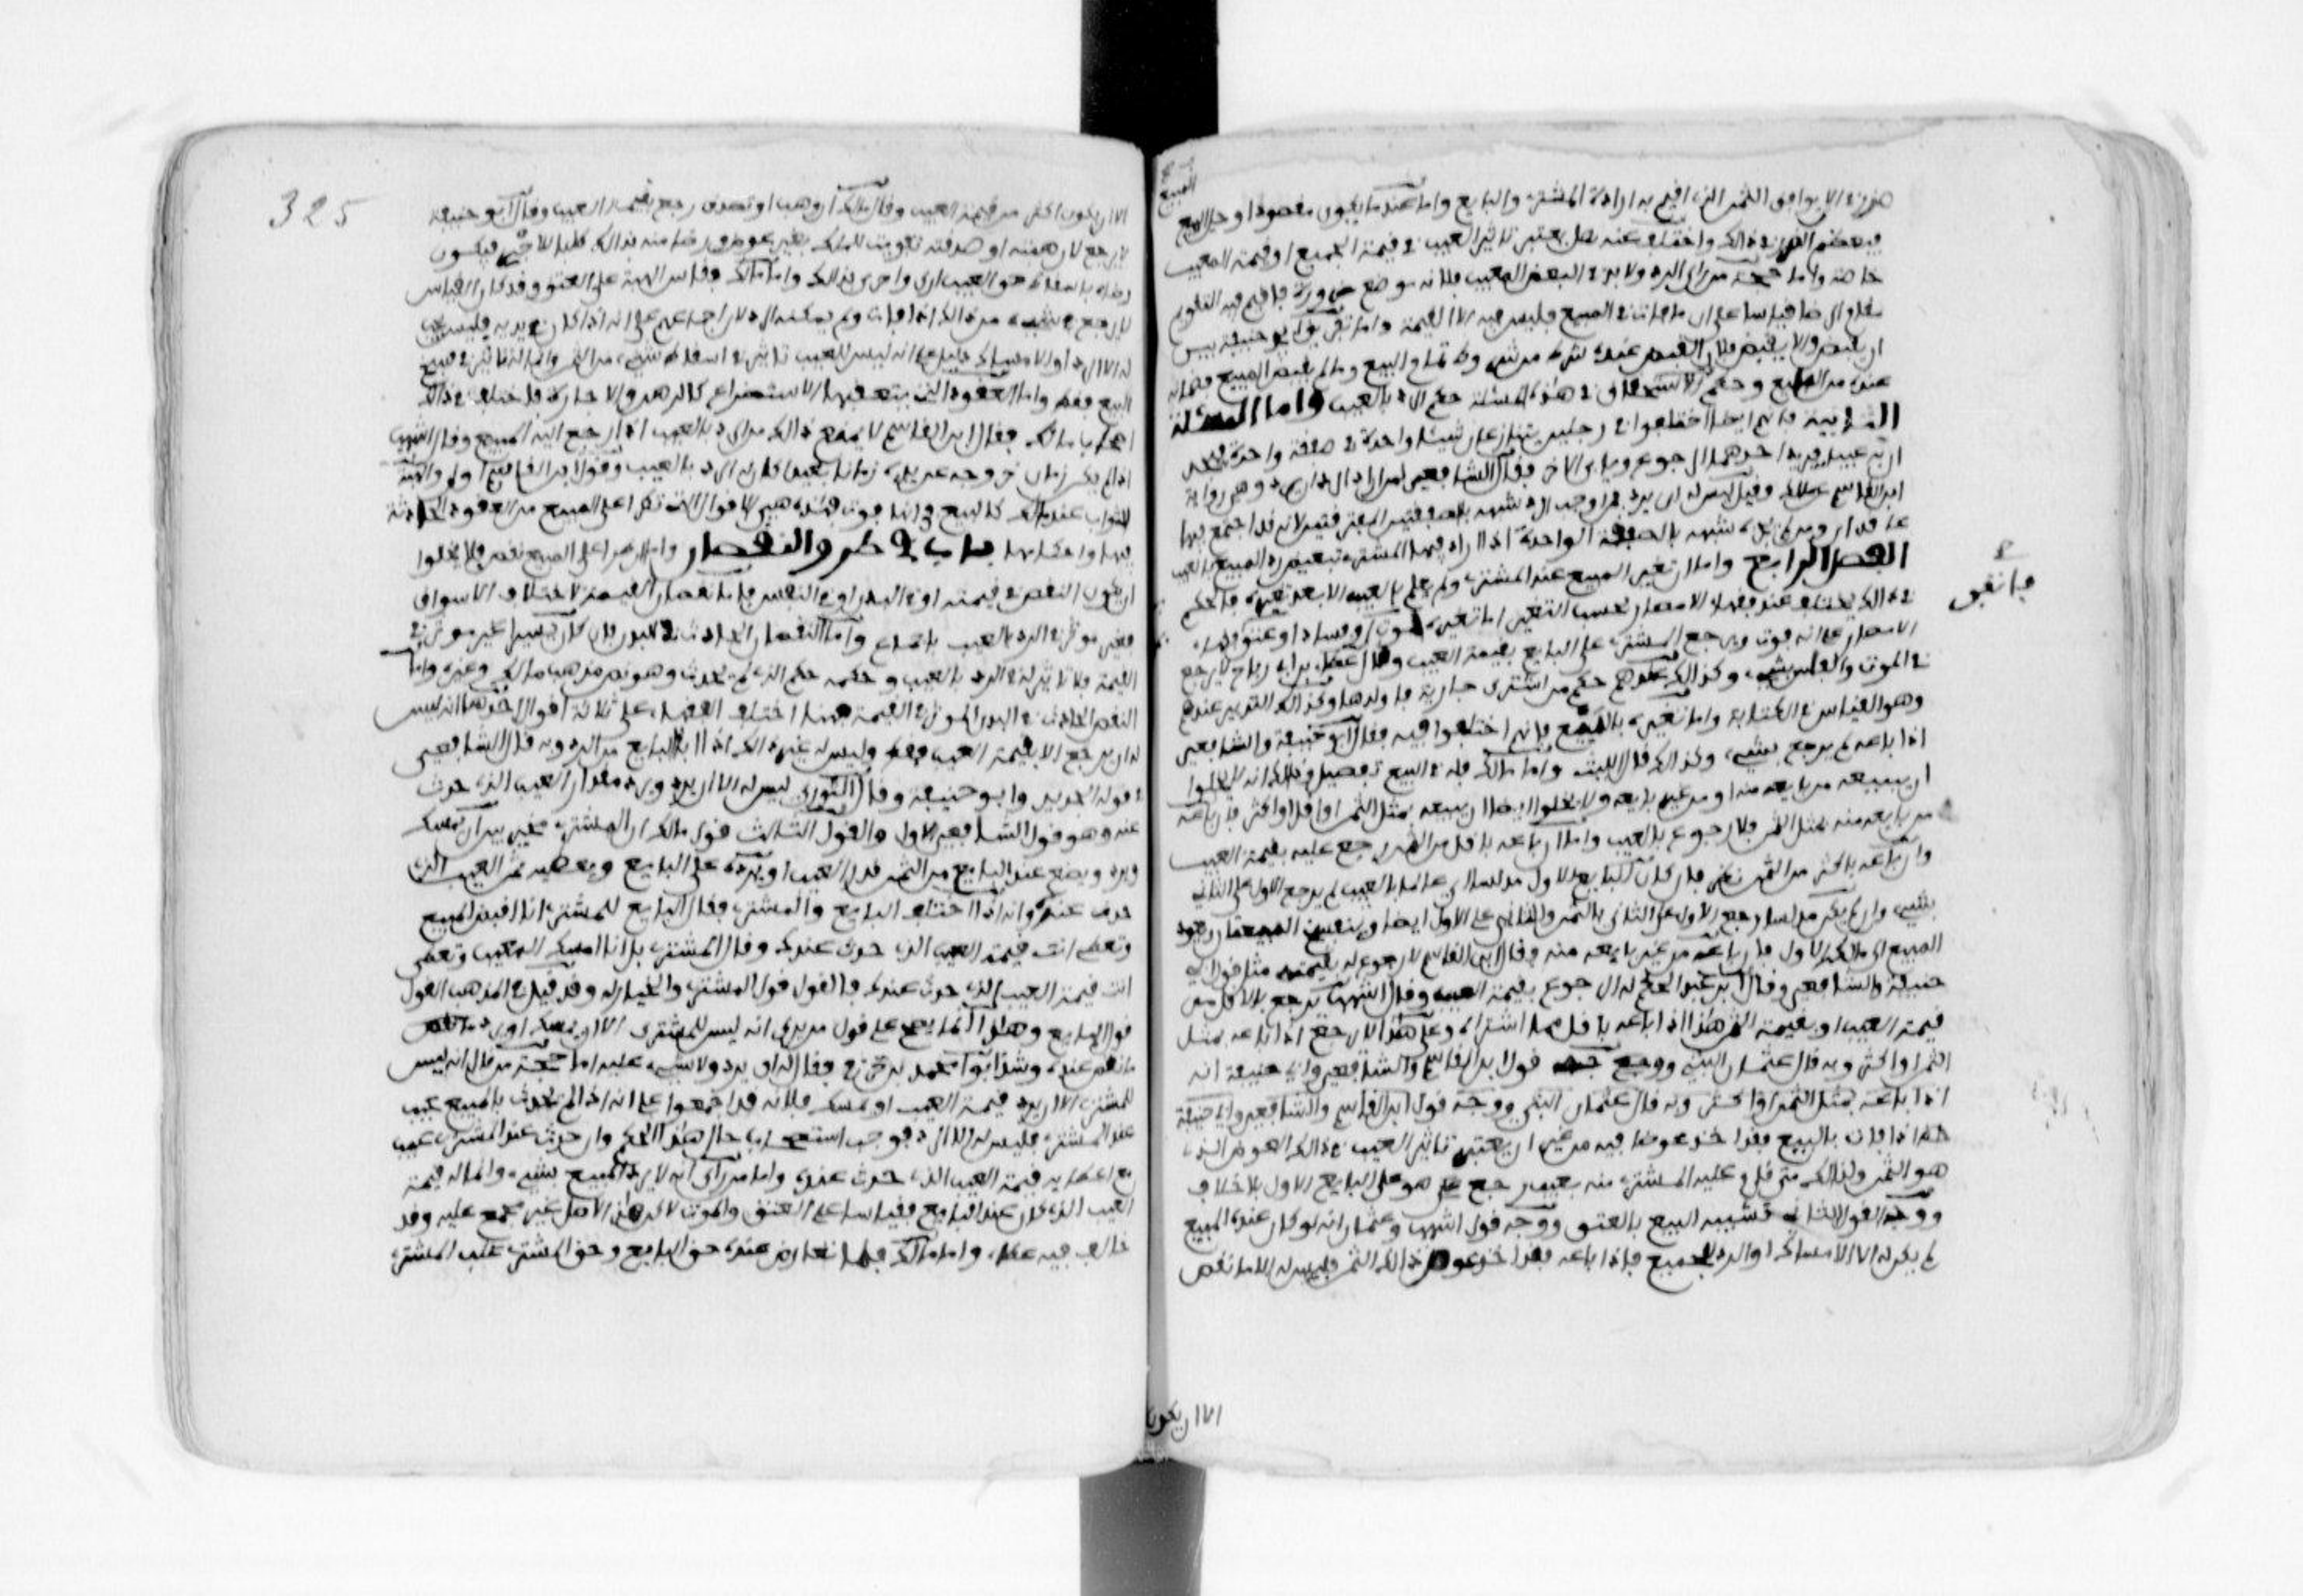 ضررا الا يوافق الثمن الذي اقيم به ارادة المشتري والبايع واما عندما يكون مقصودا او جل المبيع
فيعظم الضرر في ذالك واختلف عنه هل يعتبر تاثير العيب في قيمة الجميع او قيمة المعيب
خاصة واما حجة من راى الرد ولا بد في البعض المعيب فلانه موضع ضرورة فاقيم فيه التقويم
مقام الرضا قياسا على ان ما فات في المبيع فليس فيه الا القيمة واما تفريق ابو حنيفة بين
ان يقبض ولا يقبض فلان القبض عنده شرط من شروط تمام البيع وما لم يقبض المبيع فضمانه
عنده من البايع وحكم الاستحقاق في هذه المسئلة حكم الرد بالعيب واما المسئلة
الثانية فانهم ايضا اختلفوا في رجلين يبتاعان شيئا واحدا في صفقة واحدة فيجدان
به عيبا فيريد احدهما الرجوع ويابى الاخر فقال الشافعي لمن اراد الرد ان يرد وهي رواية
ابن القاسم عن مالك وقيل ليس له ان يرد فمن اوجب الرد شبهه بالصفقتين المفترقتين لانه قد اجتمع فيها
عاقدان ومن لم يوجبه شبهه بالصفقة الواحدة اذا اراد فيها المشتري تبعيض رد المبيع بالعيب
الفصل الرابع واما ان تغير المبيع عند المشتري ولم يعلم بالعيب الا بعد تغيره فالحكم
في ذالك يختلف عند فقهاء الامصار بحسب التغير اما تغيره بموت او فساد او عتق ففقهاء
الامصار على انه فوت ويرجع المشتري على البايع بقيمة العيب وقال عطاء بن ابي رباح لا يرجع
في الموت والعتق بشيء وكذالك عندهم حكم من اشترى جارية فاولدها وكذالك التدبير عندهم
وهو القياس في الكتابة واما تغيره بالبيع فانهم اختلفوا فيه فقال ابو حنيفة والشافعي
اذا باعه لم يرجع بشيء وكذالك قال الليث واما مالك فله في البيع تفصيل وذالك انه لا يخلوا
ان يبيعه من بايعه منه او من غير بايعه ولا يخلوا ايضا ان يبيعه بمثل الثمن او اقل او اكثر فان باعه
من بايعه منه بمثل الثمن فلا رجوع بالعيب واما ان باعه باقل من الثمن رجع عليه بقيمة العيب
وان باعه باكثر من الثمن نظر فان كان البايع الاول مدلسا اي عالما بالعيب لم يرجع الاول على الثاني
بشيء وان لم يكن مدلسا رجع الاول على الثاني بالثمن والثاني على الاول ايضا وينفسخ البيعتان ويعود
المبيع الى ملك الاول فان باعه من غير بايعه منه فقال ابن القاسم لا رجوع له بقيمته مثل قول ابي
حنيفة والشافعي وقال ابن عبد الحكم له الرجوع بقيمة العيب وقال اشهب يرجع بالاقل من
قيمة العيب او بقيمة الثمن هذا اذا باعه باقل مما اشتراه وعلى هذا لا يرجع اذا باعه بمثل
الثمن او اكثر وبه قال عثمان البتي ووجه قول ابن القاسم والشافعي وابي حنيفة انه
اذا باعه بمثل الثمن او اكثر وبه قال عثمان البتي ووجه قول ابن القاسم والشافعي وابي حنيفة
انه اذا فات بالبيع فقد اخذ عوضا فيه من غير ان يعتبر تاثير العيب في ذالك العوض الذي
هو الثمن ولذالك متى قام عليه المشتري منه بعيب رجع هو على البايع الاول بلا خلاف
ووجه القول الثاني تشبيه البيع بالعتق ووجه قول اشهب وعثمان انه لو كان عنده المبيع
لم يكن له الا الامساك او الرد للجميع فاذا باعه فقد اخذ عوض ذالك الثمن فليس له الا ما نقص
فاتفق
الا ان يكون
325
الا ان يكون اكثر من قيمة العيب وقال مالك ان وهب او تصدق رجع بقيمة العيب وقال ابو حنيفة
لا يرجع لان هبته او صدقته تفويت للملك بغير عوض ورضا منه بذالك طلبا للاجر فيكون
رضاه باسقاط حق العيب اولى واحرى بذالك واما مالك فقاس الهبة على العتق وقد كان القياس
لا يرجع بشيء من ذالك اذا فات ولم يمكنه الرد لان اجماعهم على انه اذا كان في يديه فليس يجب
له الا الرد او الامساك دليل على انه ليس للعيب تاثير في اسقاط شيء من الثمن وانما له تاثير في فسخ
البيع فقط واما العقود التي يتعقبها الاستحضار كالرهن والاجارة فاختلف في ذالك
اصحاب مالك فقال ابن القاسم لا يمنع ذالك من الرد بالعيب اذا رجع اليه المبيع وقال اشهب
اذا لم يكن زمان خروجه عن يده زمانا بعيدا كان له الرد بالعيب وقول ابن القاسم اولى والهبة
للثواب عند مالك كالبيع في انها فوت فهذه هي الاقوال التي تطرا على المبيع من العقود الحادثة
فيها واحكامها باب في طرو النقصان واما ان طرا على المبيع نقص فلا يخلوا
ان يكون النقص في قيمته او في البدن او في النفس فاما نقصان القيمة لاختلاف الاسواق
فغير موثر في الرد بالعيب باجماع واما النقصان الحادث في البدن فان كان يسيرا غير موثر في
القيمة فلا تاثير له في الرد بالعيب وحكمه حكم الذي لم يحدث وهو نص مذهب مالك وغيره واما
النقص الحادث في البدن الموثر في القيمة فيها اختلف الفقهاء على ثلاثة اقوال احدها انه ليس
له ان يرجع الا بقيمة العيب فقط وليس له غير ذالك اذا ابى البايع من الرد وبه قال الشافعي
في قوله الجديد وابو حنيفة وقال الثوري ليس له الا ان يرد ويرد مقدار العيب الذي حدث
عنده وهو قول الشافعي الاول والقول الثالث قول مالك ان المشتري مخير بين ان يمسك
ويرد ويضع عنه البايع من الثمن قدر العيب او يرده على البايع ويعطيه ثمن العيب الذي
حدث عنده وانه اذا اختلف البايع والمشتري فقال البايع للمشتري انا اقبض المبيع
وتعطي انت قيمة العيب الذي حدث عندك وقال المشتري بل انا امسك المعيب وتعطي
انت قيمة العيب الذي حدث عندك فالقول قول المشتري والخيار له وقد قيل في المذهب القول
قول البايع وهذا انما يصح على قول من يرى انه ليس للمشتري الا ان يمسك او يرد ما نقص
ما نقص عنده وشذ ابو محمد بن حزم فقال له ان يرد ولا شيء عليه اما حجة من قال انه ليس
للمشتري الا ان يرد قيمة العيب او يمسك فلانه قد اجمعوا على انه اذا لم يحدث بالمبيع عيب
عند المشتري فليس له الا الرد فوجب استصحاب حال هذا الحكم وان حدث عند المشتري عيب
مع اعطايه قيمة العيب الذي حدث عنده واما من راى انه لا يرد المبيع بشيء وانما له قيمة
العيب الذي كان عند البايع فقياسا على العتق والموت لاكن هذا الاصل غير مجمع عليه وقد
خالف فيه عطاء واما مالك فلما تعارض عنده حق البايع وحق المشتري غلب المشتري